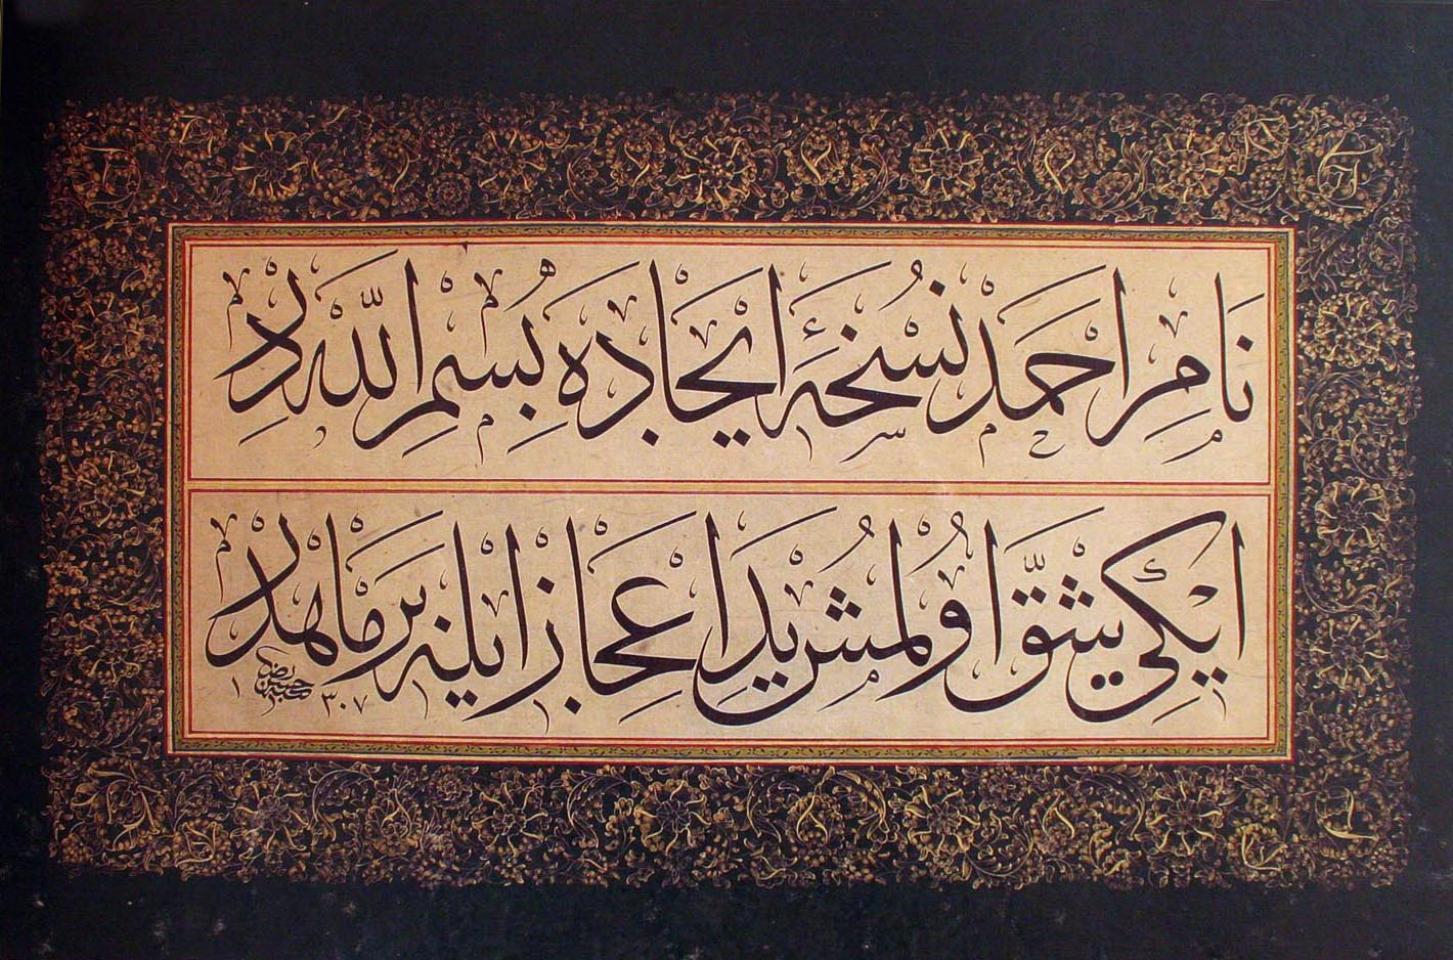 نَامِ اَحْمَدْ نُسْخَۀِ اِيجَادَه بِسْمِ اللّٰهْدِرْ
اِيكِي شَقّ اُولْمُشْ يَدِ اِعْجَازِ ايلَه بَرْ مَاهْدِرْ
١٣٠٧